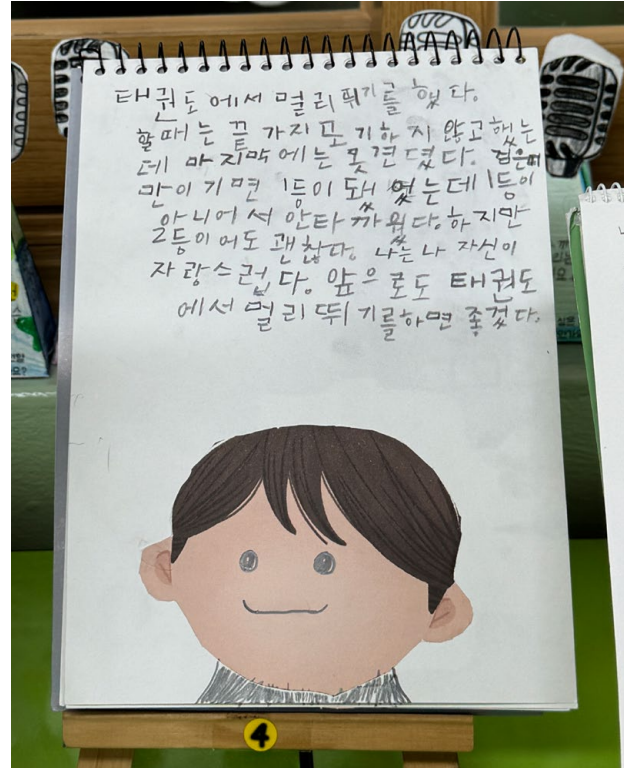 태권도에서 멀리뛰기를 했다.
할때는 끝 가지 포기하지 않고 했는
데 마지막에는 못견뎠다. 
만이기면 1등이 됐었는데 1등이
아니어서 안타까웠다. 하지만
2등이어도 괜찮다. 나는 나 자신이
자랑스럽다. 앞으로도 태권도
에서 멀리뛰기를하면 좋겠다.
4